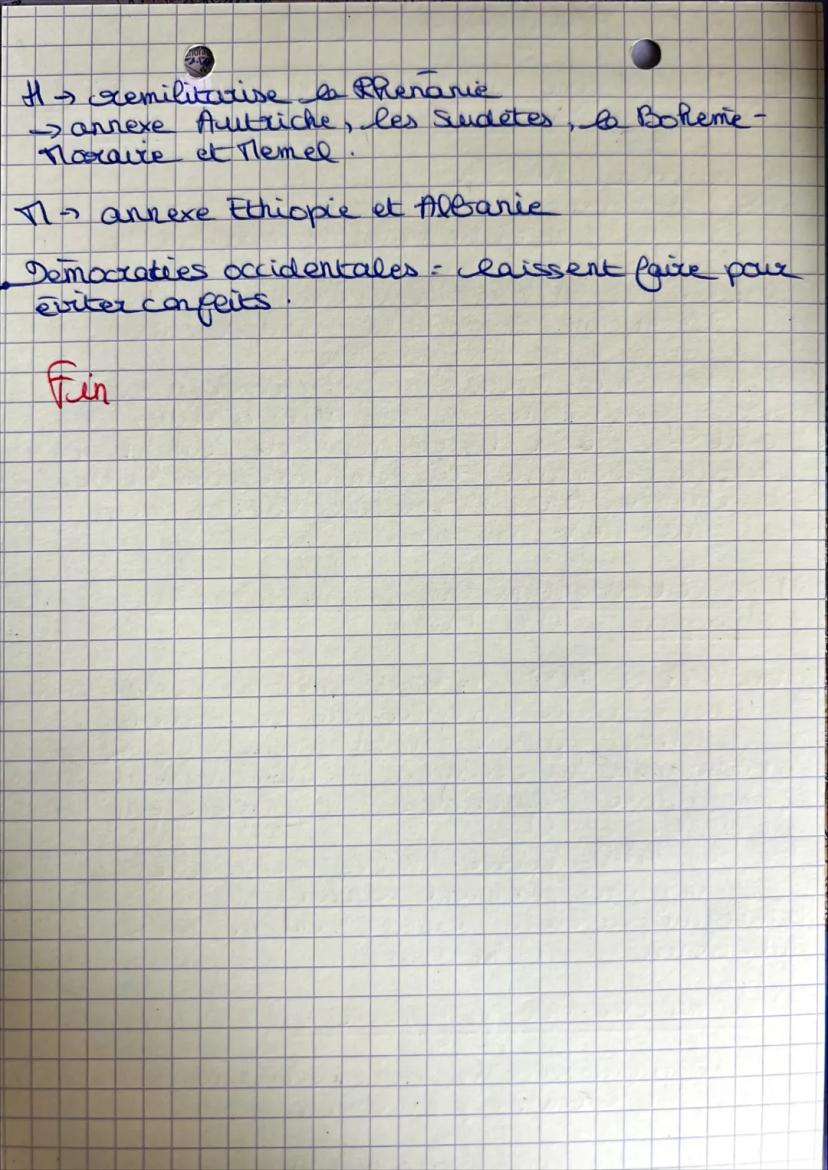 H → remilitarise la Rhénanie
→ annexe Autriche, les Sudètes, la Bohème-
Moravie et Memel.
M → annexe Ethiopie et Albanie
Démocraties occidentales = laissent faire pour
éviter conflits.
Fin